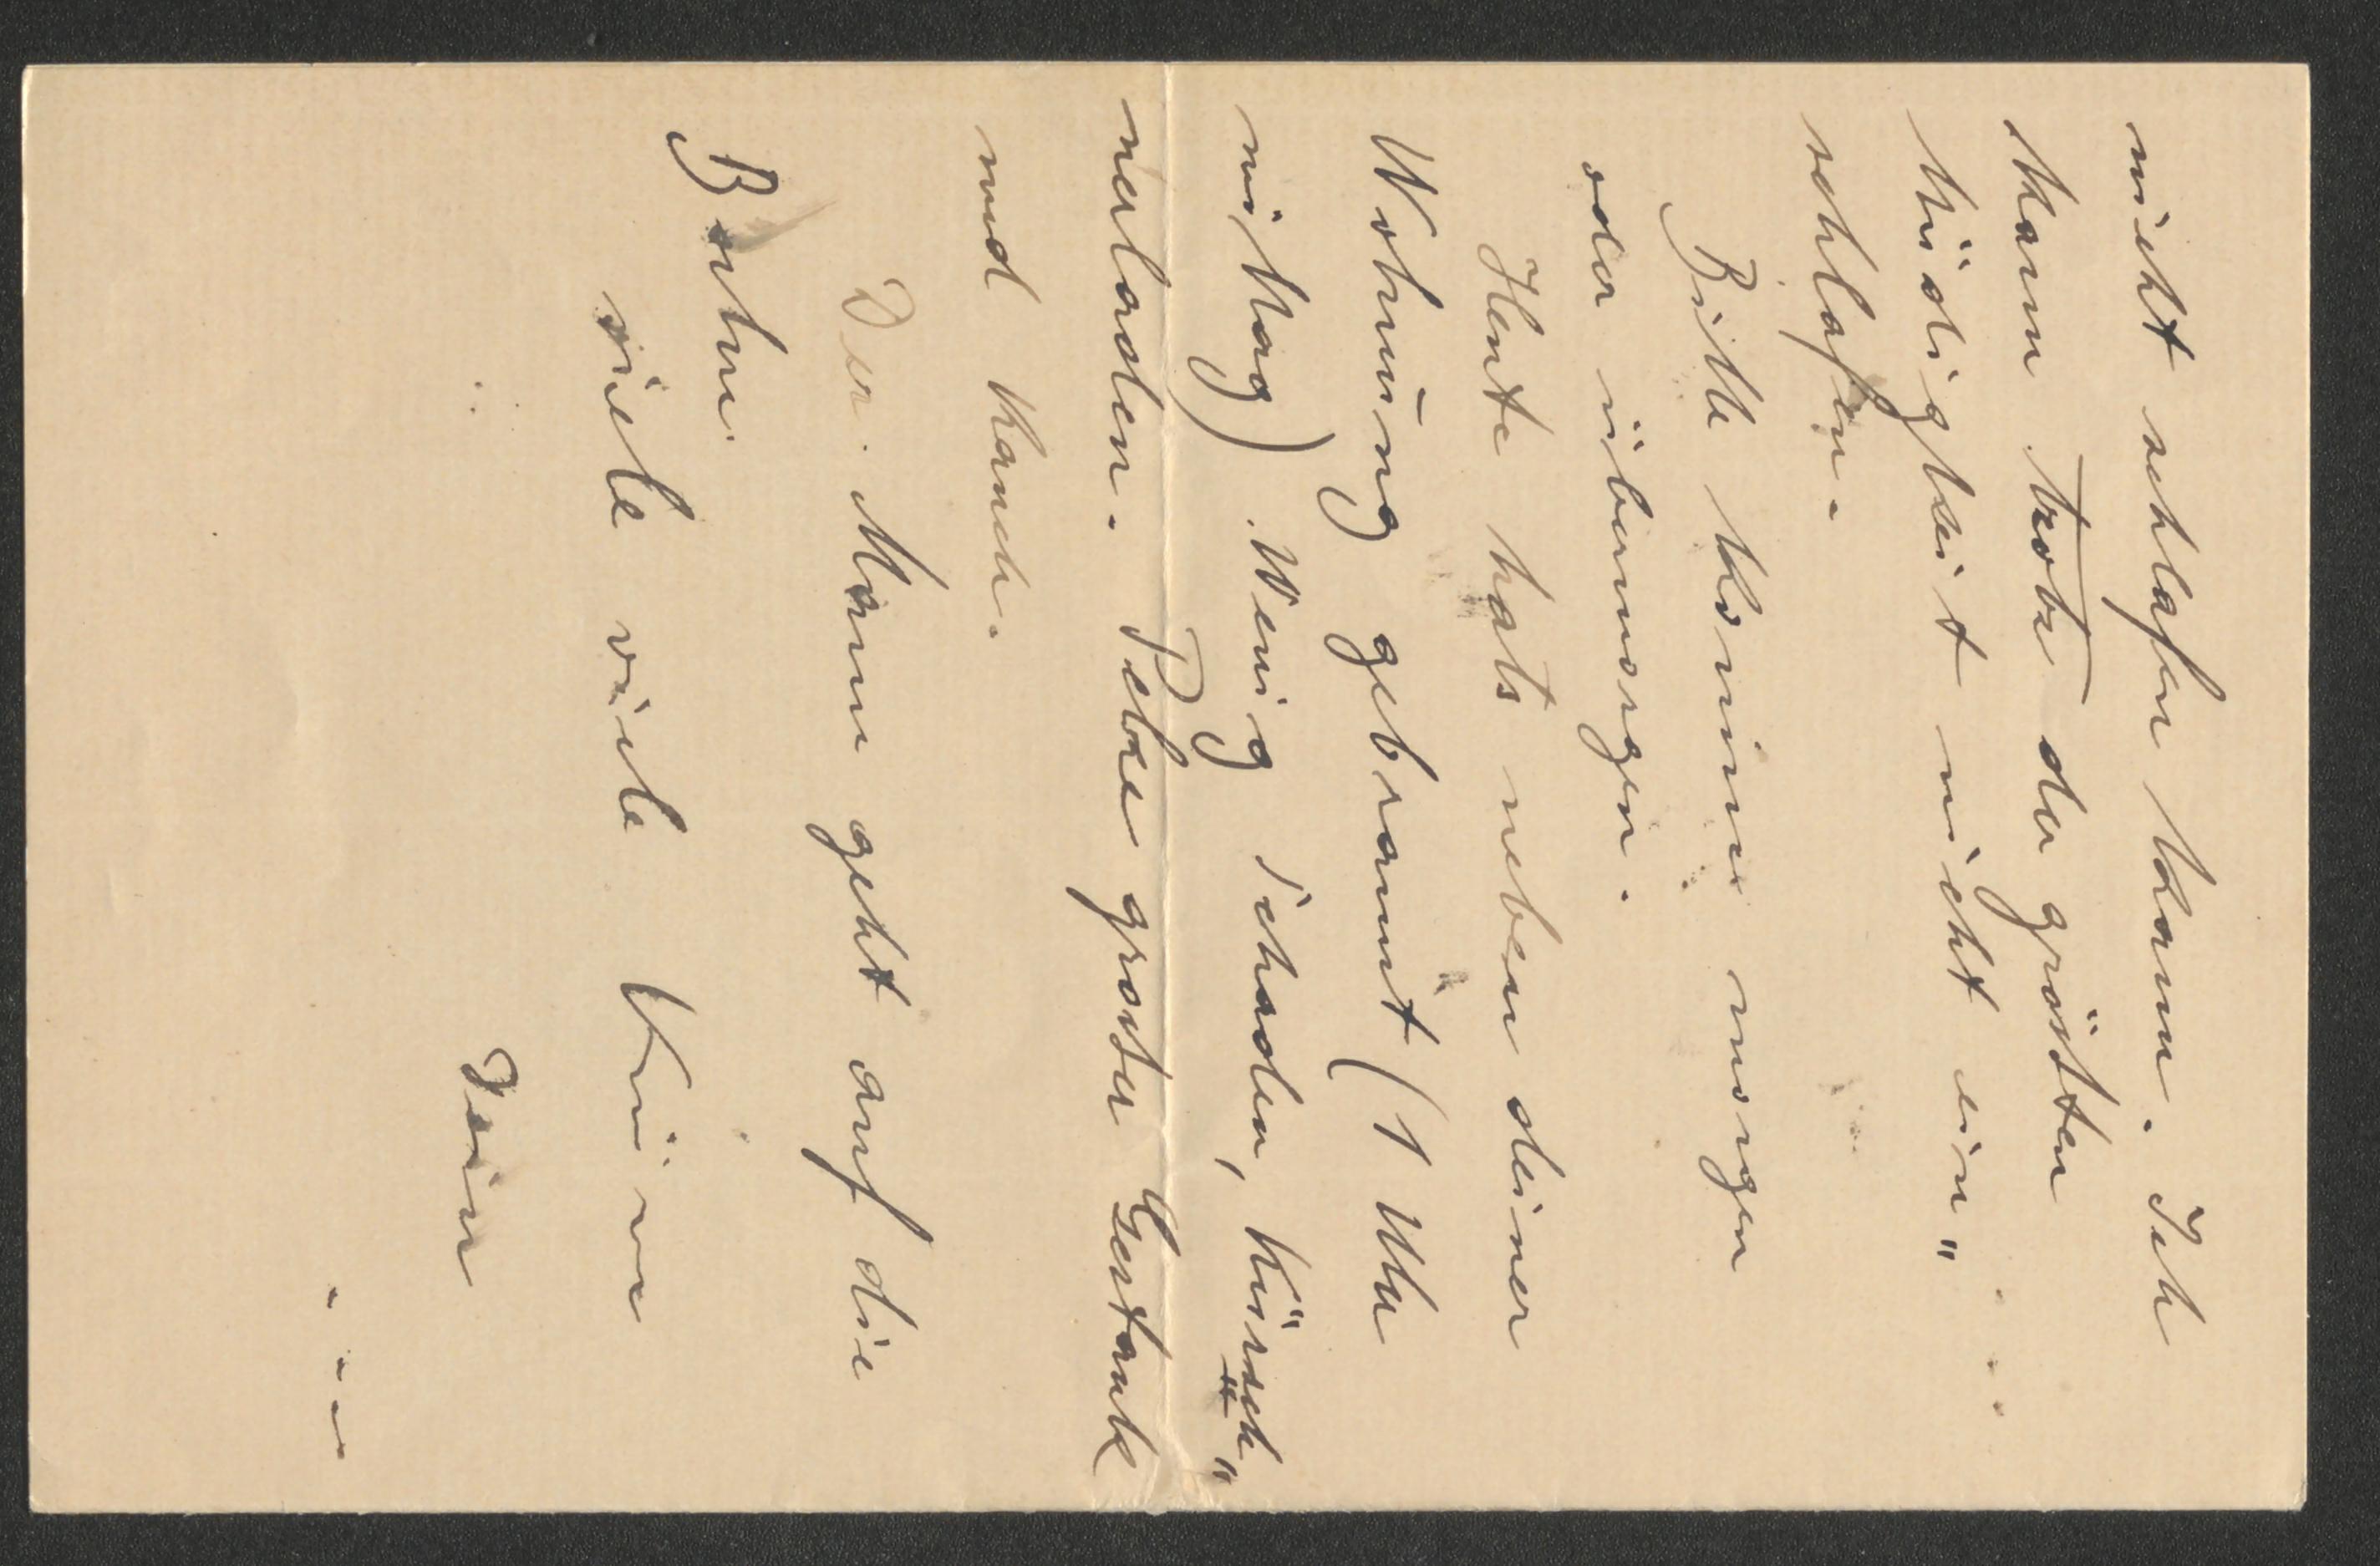 nicht schlafen kann. Ich
kann trotz der grösten
Müdigkeit nicht ein„
schlafen.
Bitte komme morgen
oder übermorgen.
Heute hats neben deiner
Wohnung gebrannt (1 Uhr
mittag) Wenig Schaden,
neuladen. Pelze grosser Gestank
und Rauch.
Der Mann geht auf die
Bahn.
viele viele Küsse
Dein